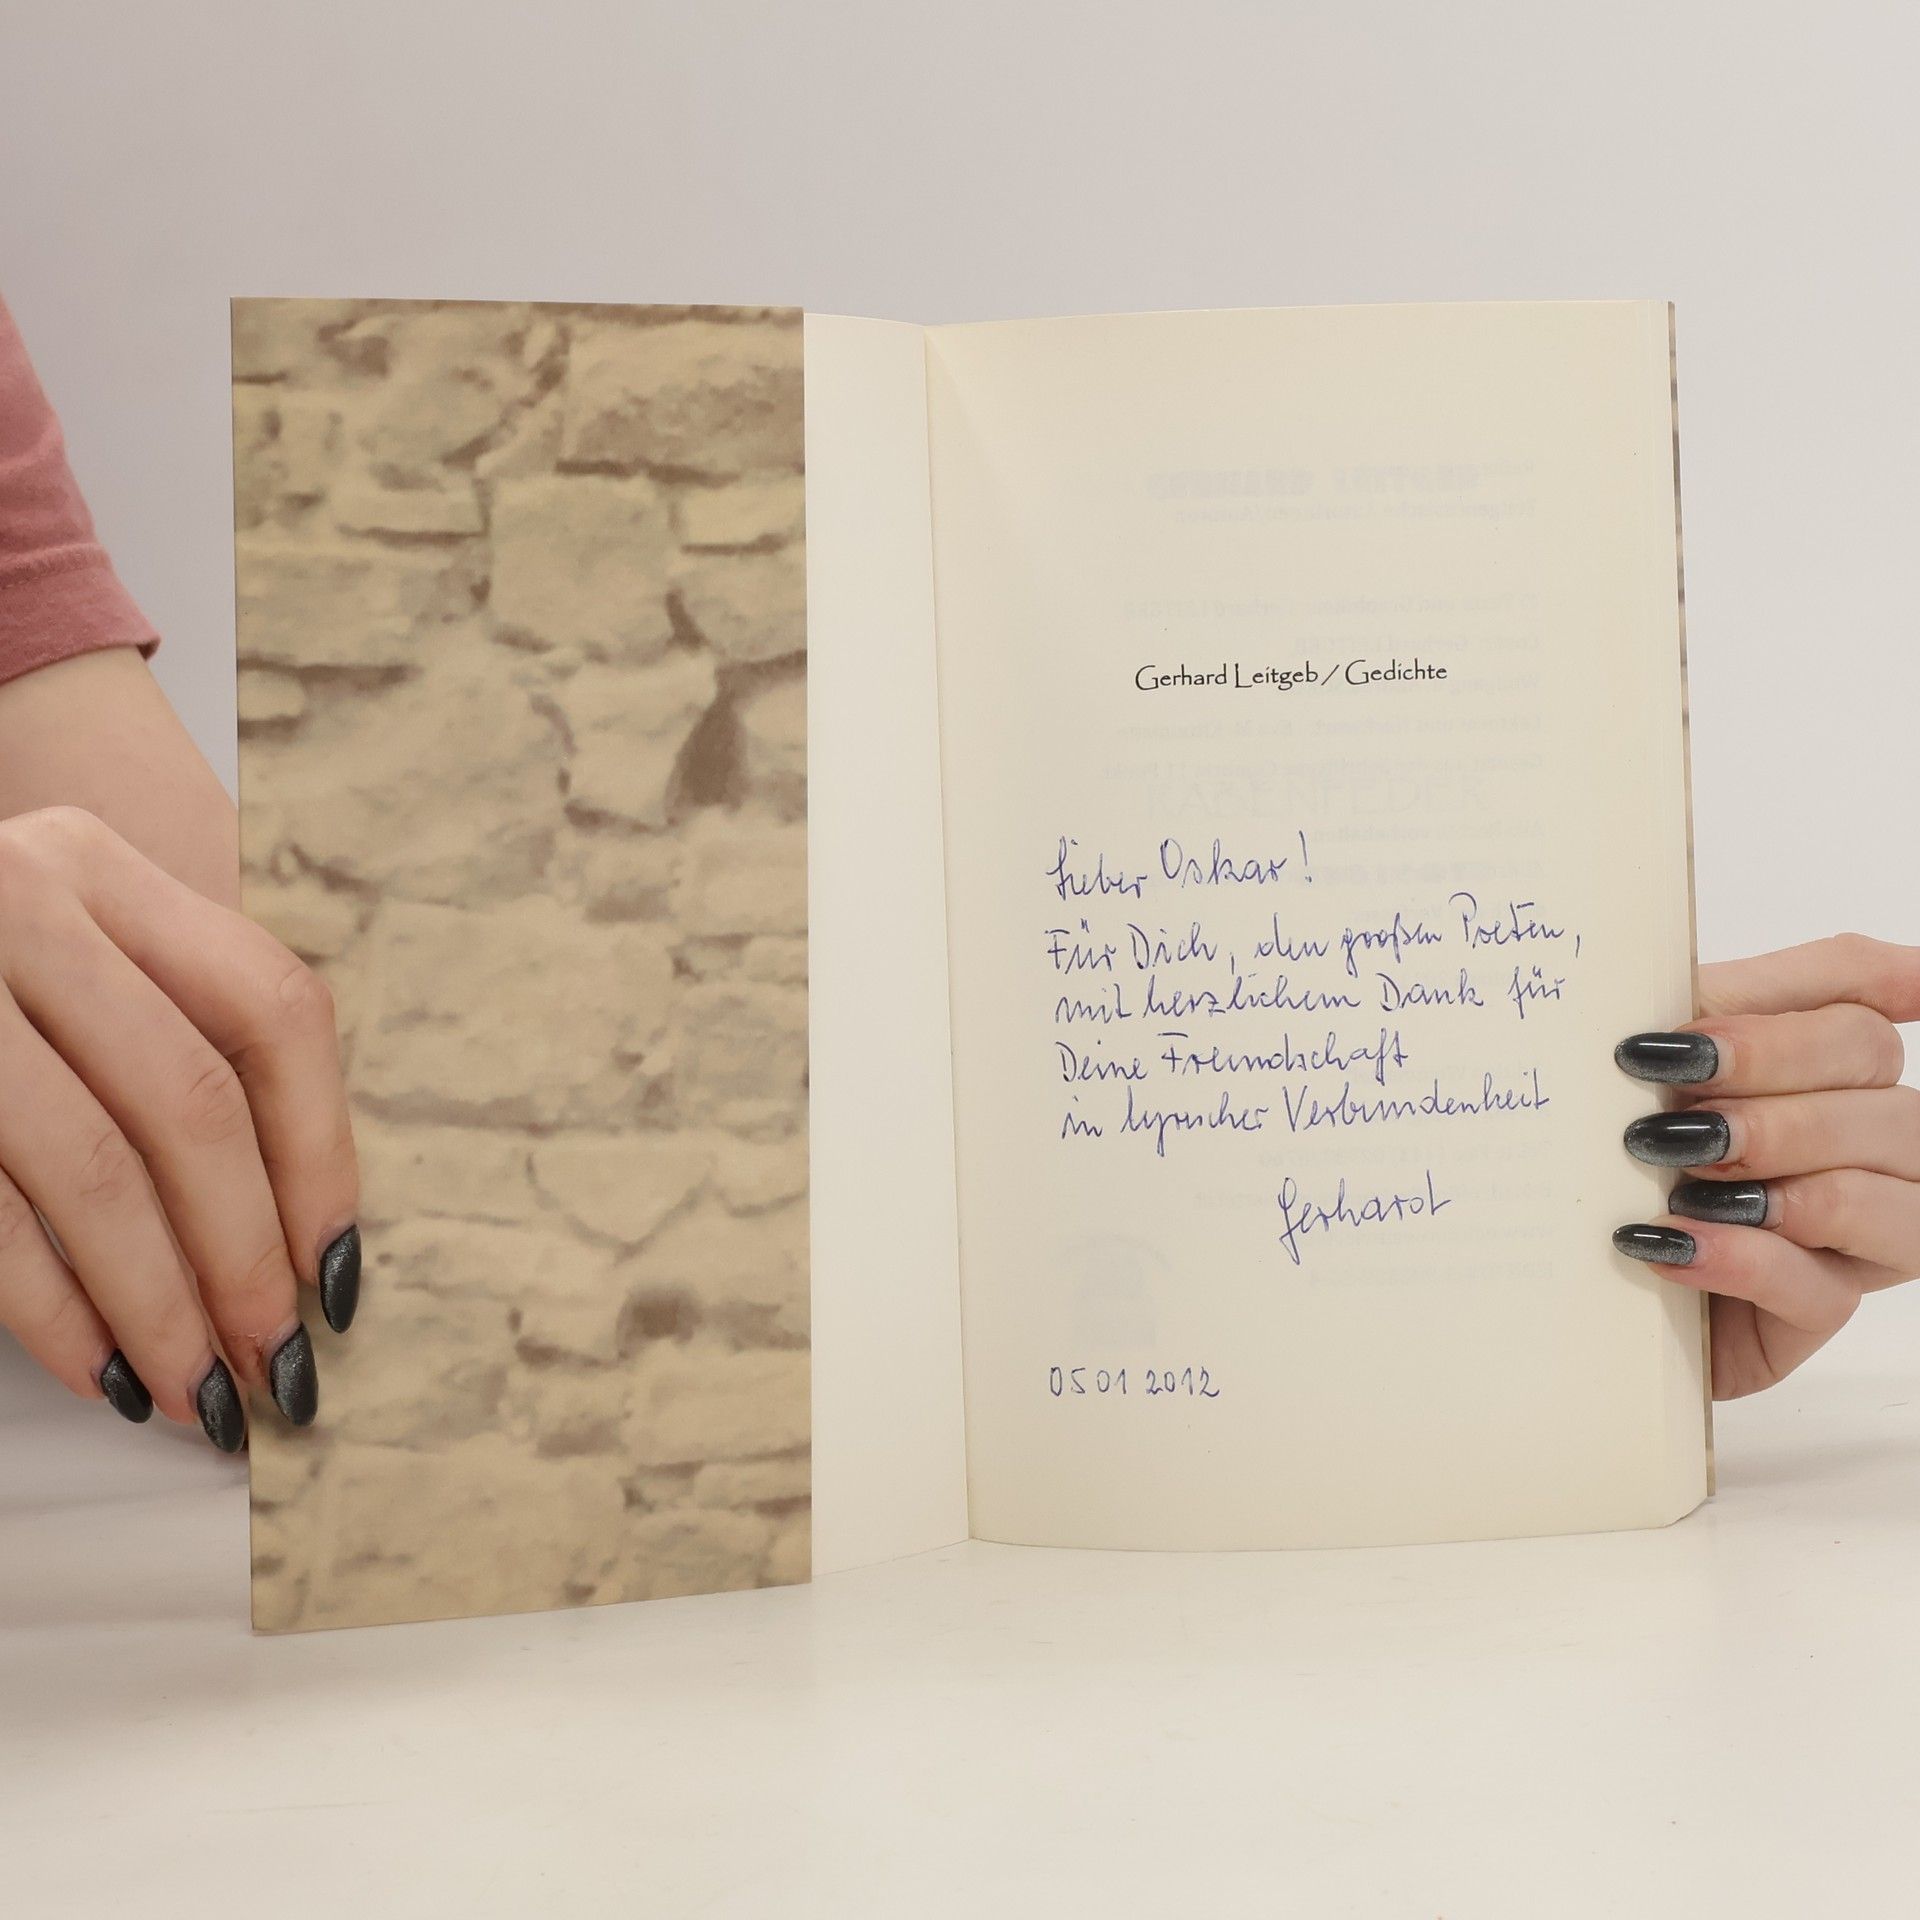 Gerhard Leitgeb / Gedichte
Lieber Oskar!
Für Dich, den großen Poeten,
mit herzlichem Dank für
Deine Freundschaft
in lyrischer Verbundenheit
Gerhard
05 01 2012
RABENFEDER